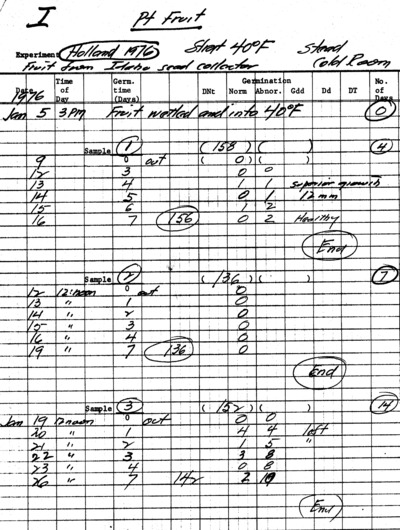 I Pt Fruit
Experiment Holland 1976 Strat 40°F Stored
Fruit from Idaho seed collector Cold Room
Date Time of Day Germ. time (Days) DNt Germination Norm Abnor. Gdd Dd DT No. of Days
1976
Jan 5 3 PM Fruit wetted and into 40°F 0
Sample 1 (158) ( ) 4
9 0 out ( 0)( )
12 3 0 0
13 4 1 1 superior growth
14 5 0 1 12 mm
15 6 1 2
16 7 156 0 2 Healthy
End
Sample 2 (136) ( ) 7
12 12:noon 0 out 0
13 " 1 0
14 " 2 0
15 " 3 0
16 " 4 0
19 " 7 136 0
End
Sample 3 (152) ( ) 14
Jan 19 12 noon 0 out 0 0
20 " 1 4 4 left
21 " 2 1 5 "
22 " 3 3 8
23 " 4 0 8
26 " 7 142 2 10
End